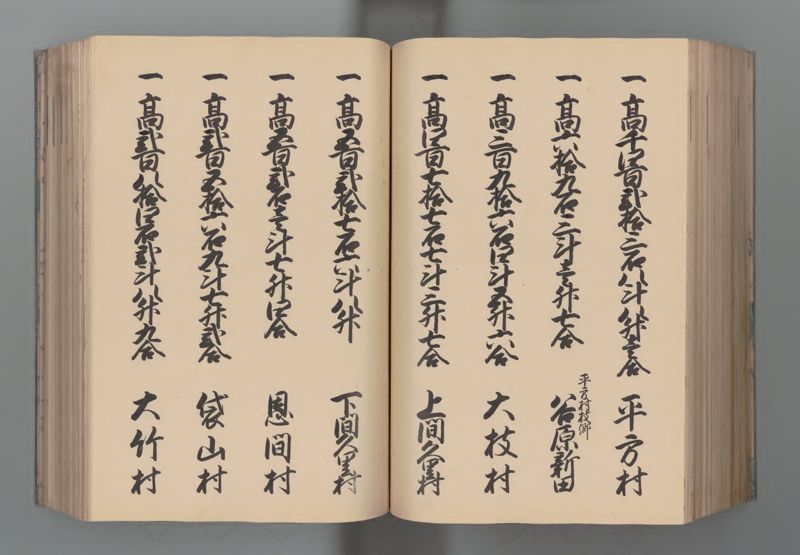 一 高千四百弐拾三石八斗八升壱合 平方村
一 高六拾九石二斗壱升七合 平方村枝郷 谷原新田
一 高三百九拾六石四斗五升六合 大枝村
一 高四百七拾七石七斗三升七合 上間久里村
一 高五百弐拾七石六斗八升 下間久里村
一 高五百弐石壱斗七升四合 恩間村
一 高弐百五拾六石九斗七升弐合 袋山村
一 高弐百八拾四石弐斗八升九合 大竹村